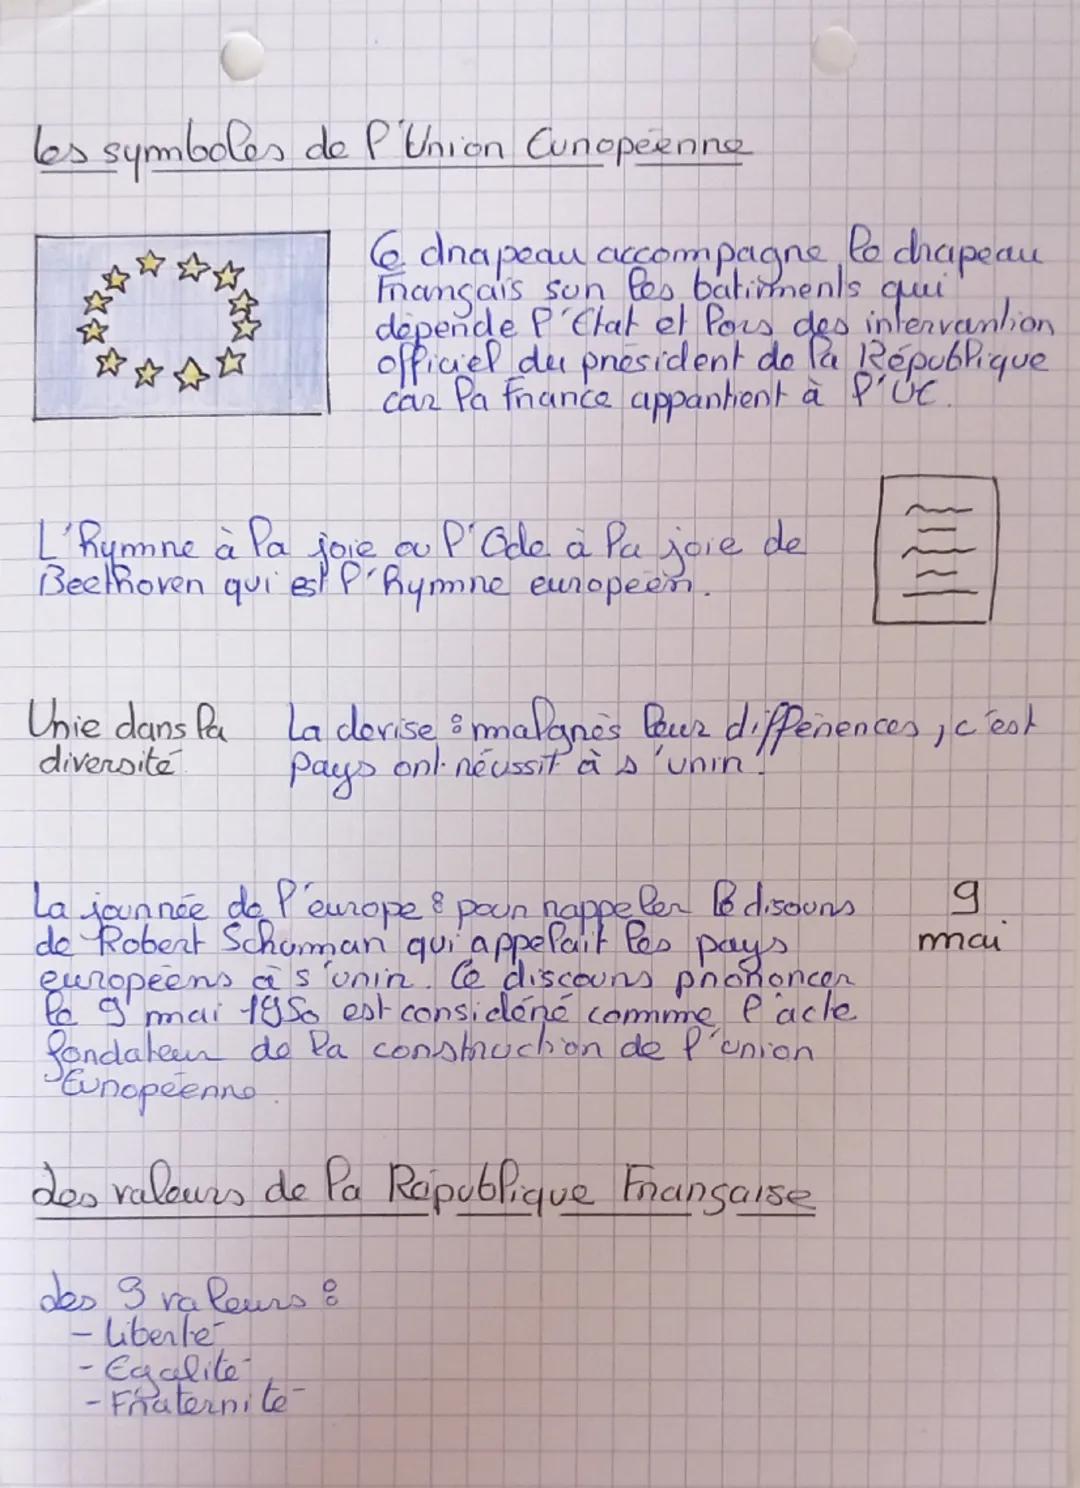 Les symboles de l'Union Européenne
Ce drapeau accompagne le drapeau
Français sur les batiments qui
dépende l'Etat et lors des intervantion
officiel du président de la République
car la France appartient à l'UE.
L'hymne à la joie ou l'Ode à la joie de
Beethoven qui est l'hymne européen.
Unie dans la
diversité
La devise : malgrés leur différences, c'est
pays ont réussit à s'unir.
La journée de l'europe : pour rappeler le disours
de Robert Schuman qui appelait les pays
européens à s'unir. Ce discours prononcer
le 9 mai 1950 est considéré comme l'acte
fondateur de la construction de l'union
Européenne.
9
mai
Les valeurs de la République Française
Les 3 valeurs :
- Liberté
- Egalité
- Fraternité